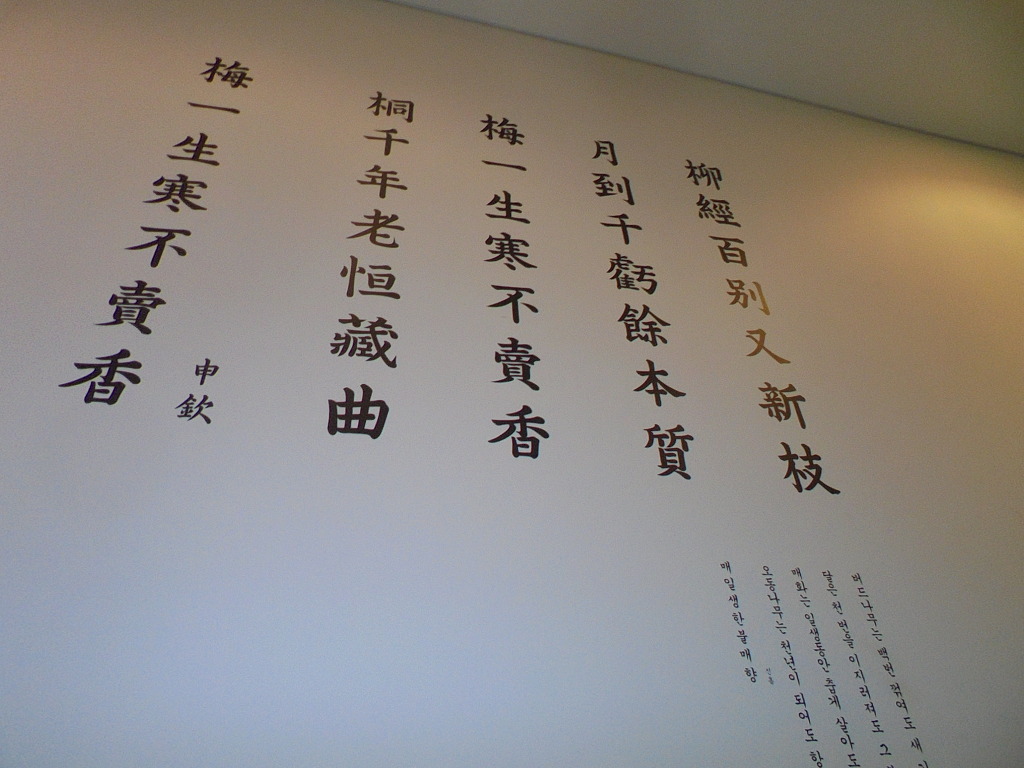 梅一生寒不賣香
申欽
桐千年老恒藏曲
梅一生寒不賣香
月到千虧餘本質
柳經百别又新枝
매일생한불매향
신흠
오동나무는 천년이 되어도 항
매화는 일생동안 춥게 살아도
달은 천 번을 이지러져도 그
버드나무는 백번 꺾여도 새